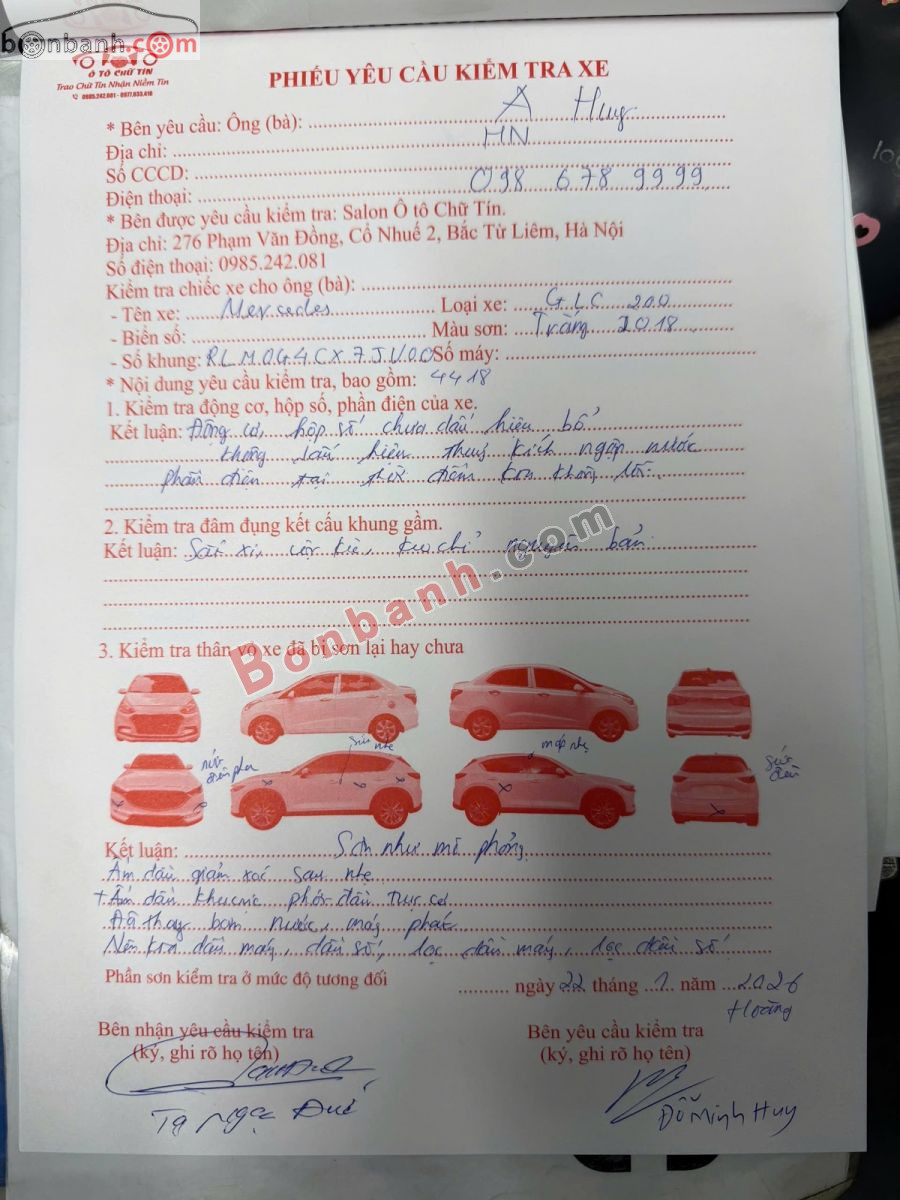 bonbanh.com
Ô TÔ CHỮ TÍN
Trao Chữ Tín Nhận Niềm Tin
0985.242.081 - 0977.633.416
PHIẾU YÊU CẦU KIỂM TRA XE
* Bên yêu cầu: Ông (bà): A Huy
Địa chỉ: HN
Số CCCD:
Điện thoại: 098 678 9999
* Bên được yêu cầu kiểm tra: Salon Ô tô Chữ Tín.
Địa chỉ: 276 Phạm Văn Đồng, Cổ Nhuế 2, Bắc Từ Liêm, Hà Nội
Số điện thoại: 0985.242.081
Kiểm tra chiếc xe cho ông (bà):
- Tên xe: Mercedes Loại xe: GLC 200
- Biển số: Màu sơn: Trắng 2018
- Số khung: RLM0G4CX7JV00 Số máy:
* Nội dung yêu cầu kiểm tra, bao gồm: 4418
1. Kiểm tra động cơ, hộp số, phần điện của xe.
Kết luận: Động cơ, hộp số chưa dấu hiệu bổ
không dấu hiệu thuỷ kích ngập nước
phần điện tại thời điểm không lỗi
2. Kiểm tra đâm đụng kết cấu khung gầm.
Kết luận: keo chỉ nguyên bản
Bonbanh.com
3. Kiểm tra thân vỏ xe đã bị sơn lại hay chưa
nứt đèn pha
sứt nhẹ
móp nhẹ
sứt đèn
Kết luận: Sơn như mô phỏng
Ẩm dầu giảm xóc sau nhẹ
+ Ẩm dầu khu vực phớt đầu trục cơ
Đã thay bơm nước, máy phát
Nên dầu máy, dầu số, lọc dầu máy, lọc dầu số
Phần sơn kiểm tra ở mức độ tương đối
ngày 22 tháng 1 năm 2026
Hoàng
Bên nhận yêu cầu kiểm tra Bên yêu cầu kiểm tra
(ký, ghi rõ họ tên) (ký, ghi rõ họ tên)
Tạ Ngọc Đức Đỗ Minh Huy